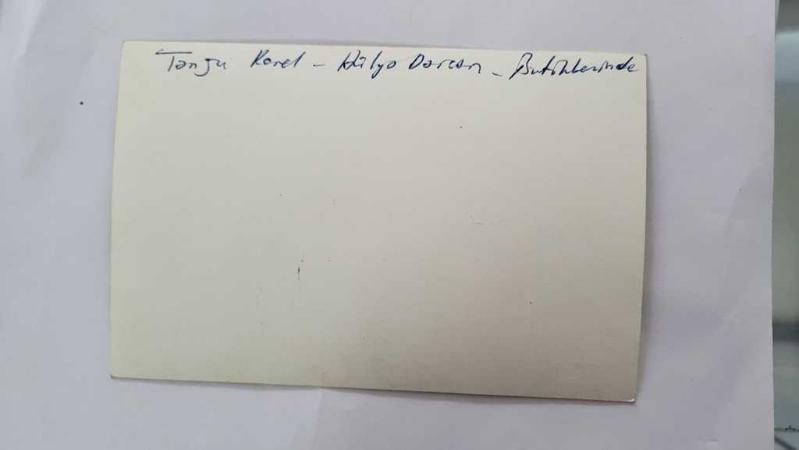 Tanju Korel - Hülya Darcan - Butiklerinde